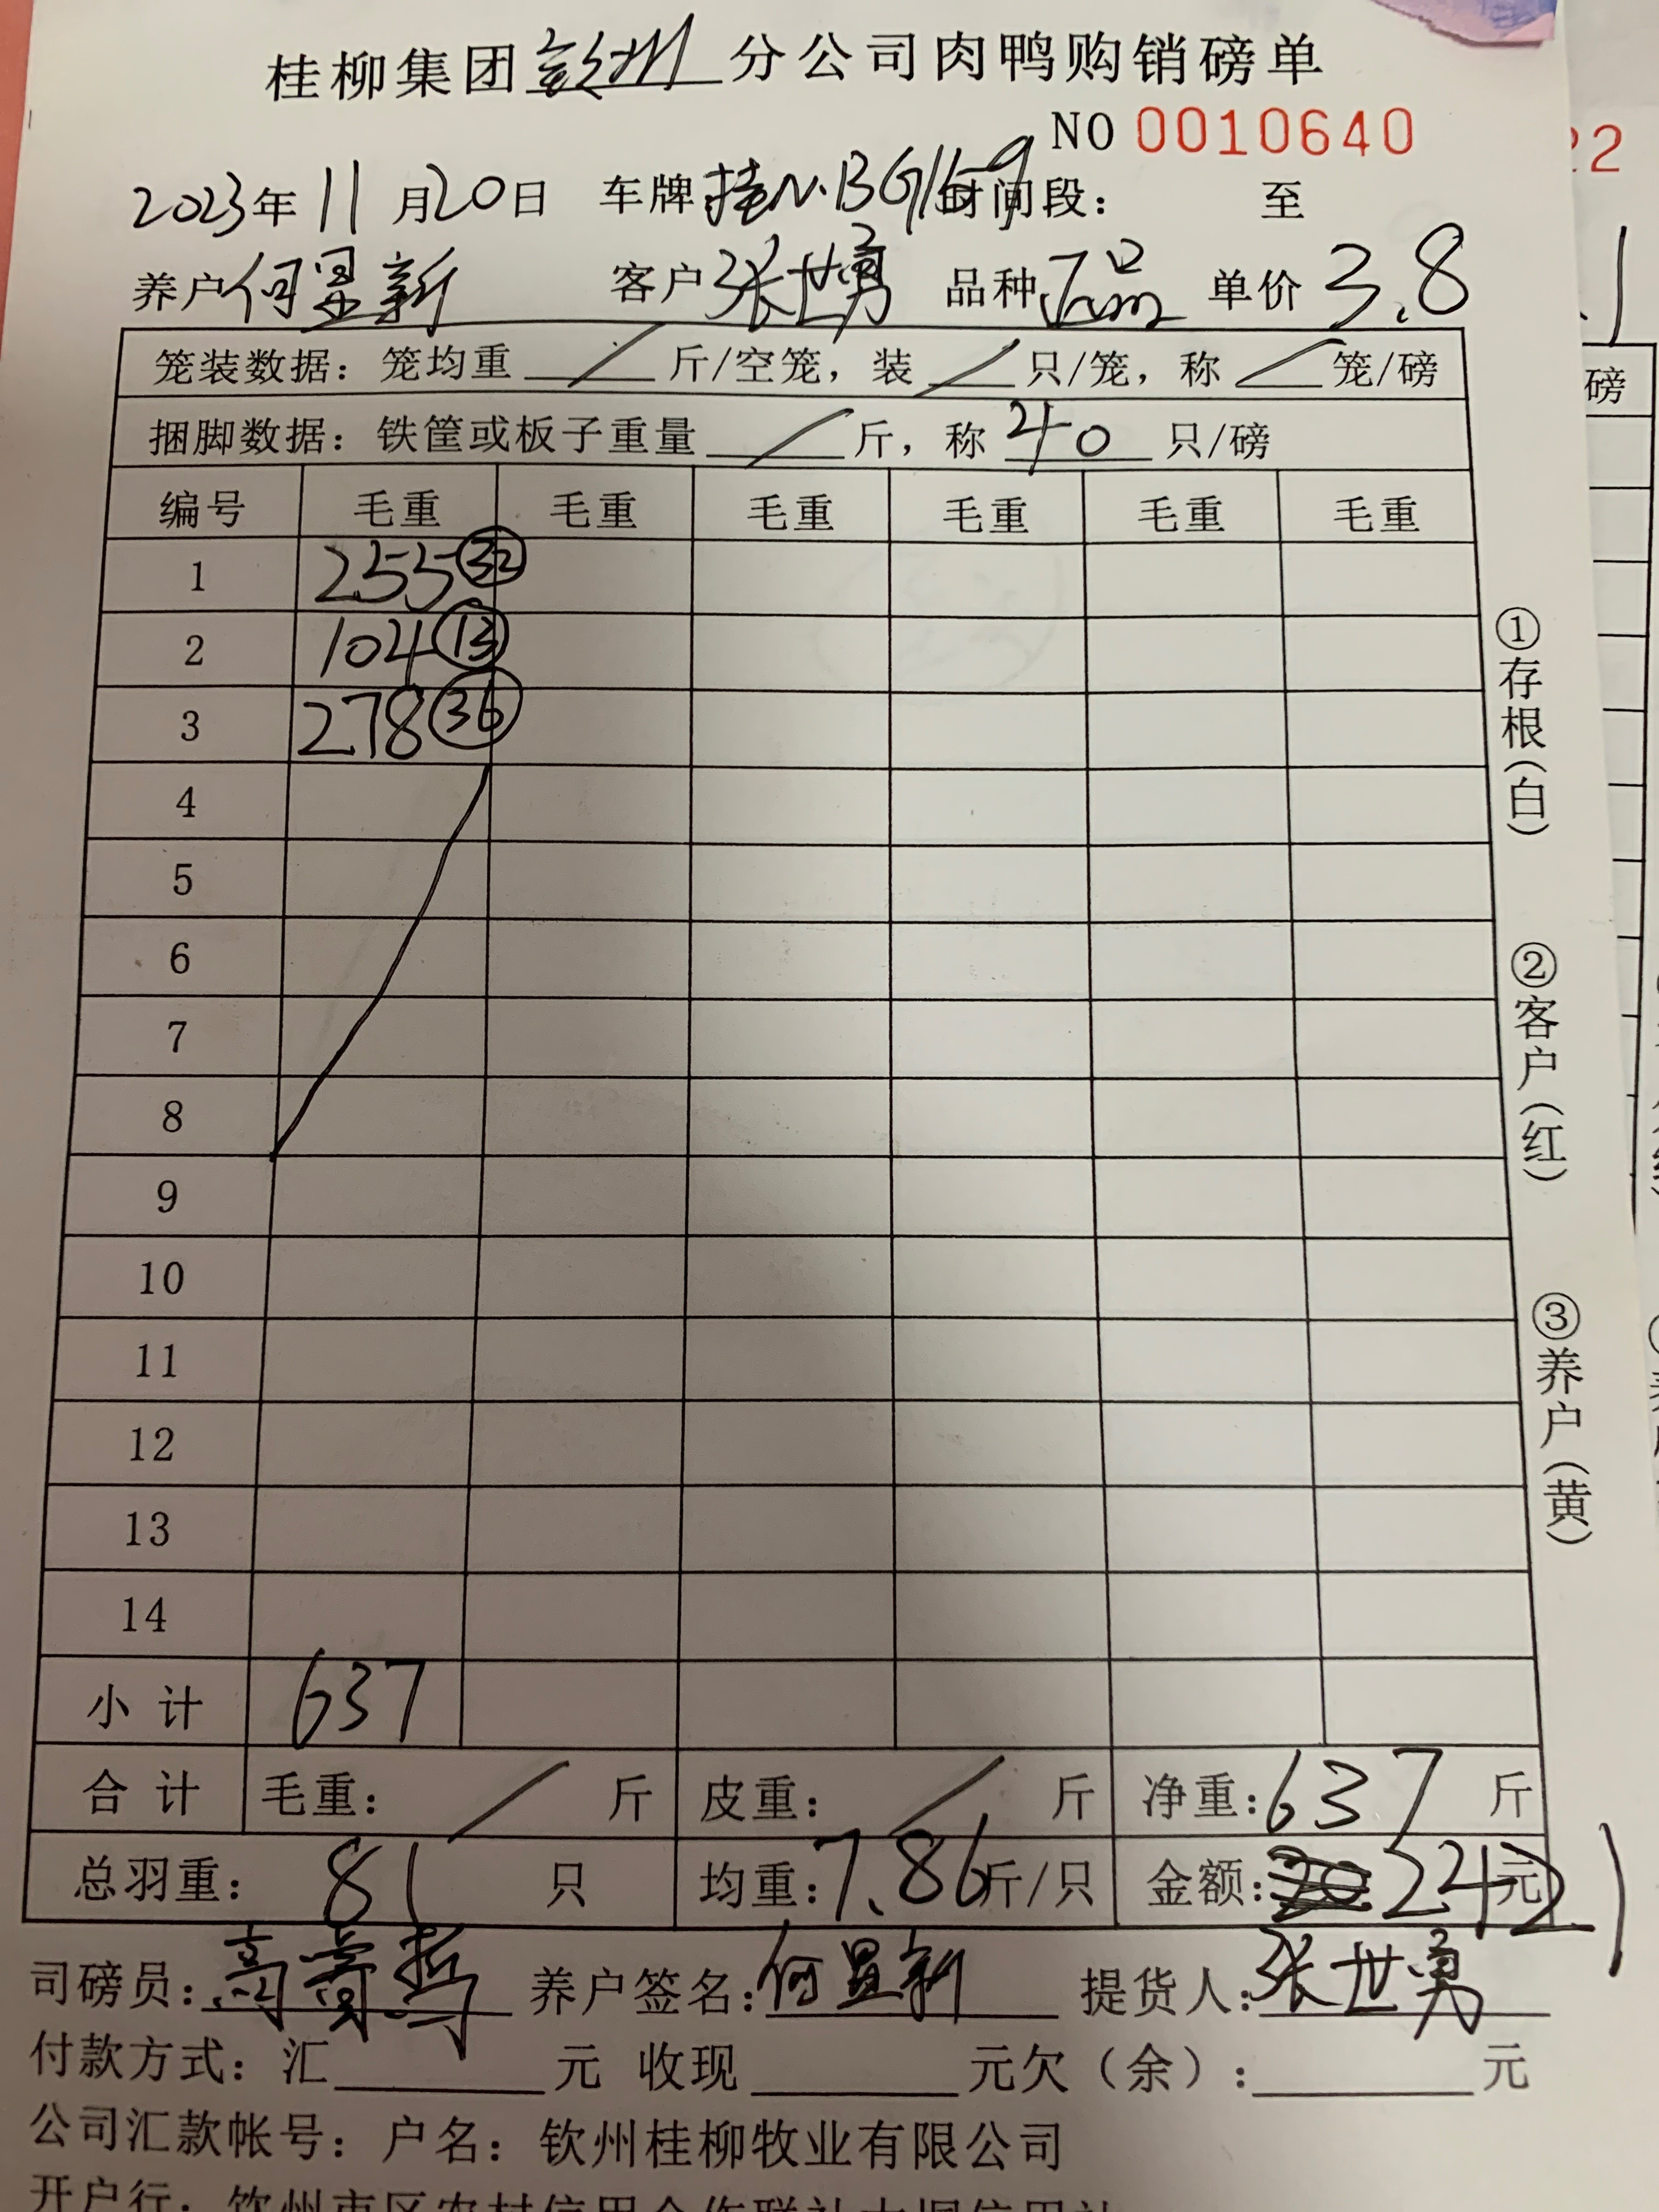 桂柳集团钦州分公司肉鸭购销磅单
NO 0010640
2023年11月20日 车牌桂N·BG169时间段: 至
养户何显新 客户张世勇 品种 单价3.8
笼装数据: 笼均重 / 斤/空笼, 装 / 只/笼, 称 / 笼/磅
捆脚数据: 铁筐或板子重量 / 斤, 称 40 只/磅
编号 毛重 毛重 毛重 毛重 毛重 毛重
1 255 ㉜
2 104 ⑬
3 278 ㊱
4
5
6
7
8
9
10
11
12
13
14
小计 637
合计 毛重: / 斤 皮重: / 斤 净重: 637 斤
总羽重: 81 只 均重: 7.86斤/只 金额: 2421元
司磅员: 养户签名: 何显新 提货人: 张世勇
付款方式: 汇 元 收现 元欠(余): 元
公司汇款帐号: 户名: 钦州桂柳牧业有限公司
①存根(白)
②客户(红)
③养户(黄)
22
磅